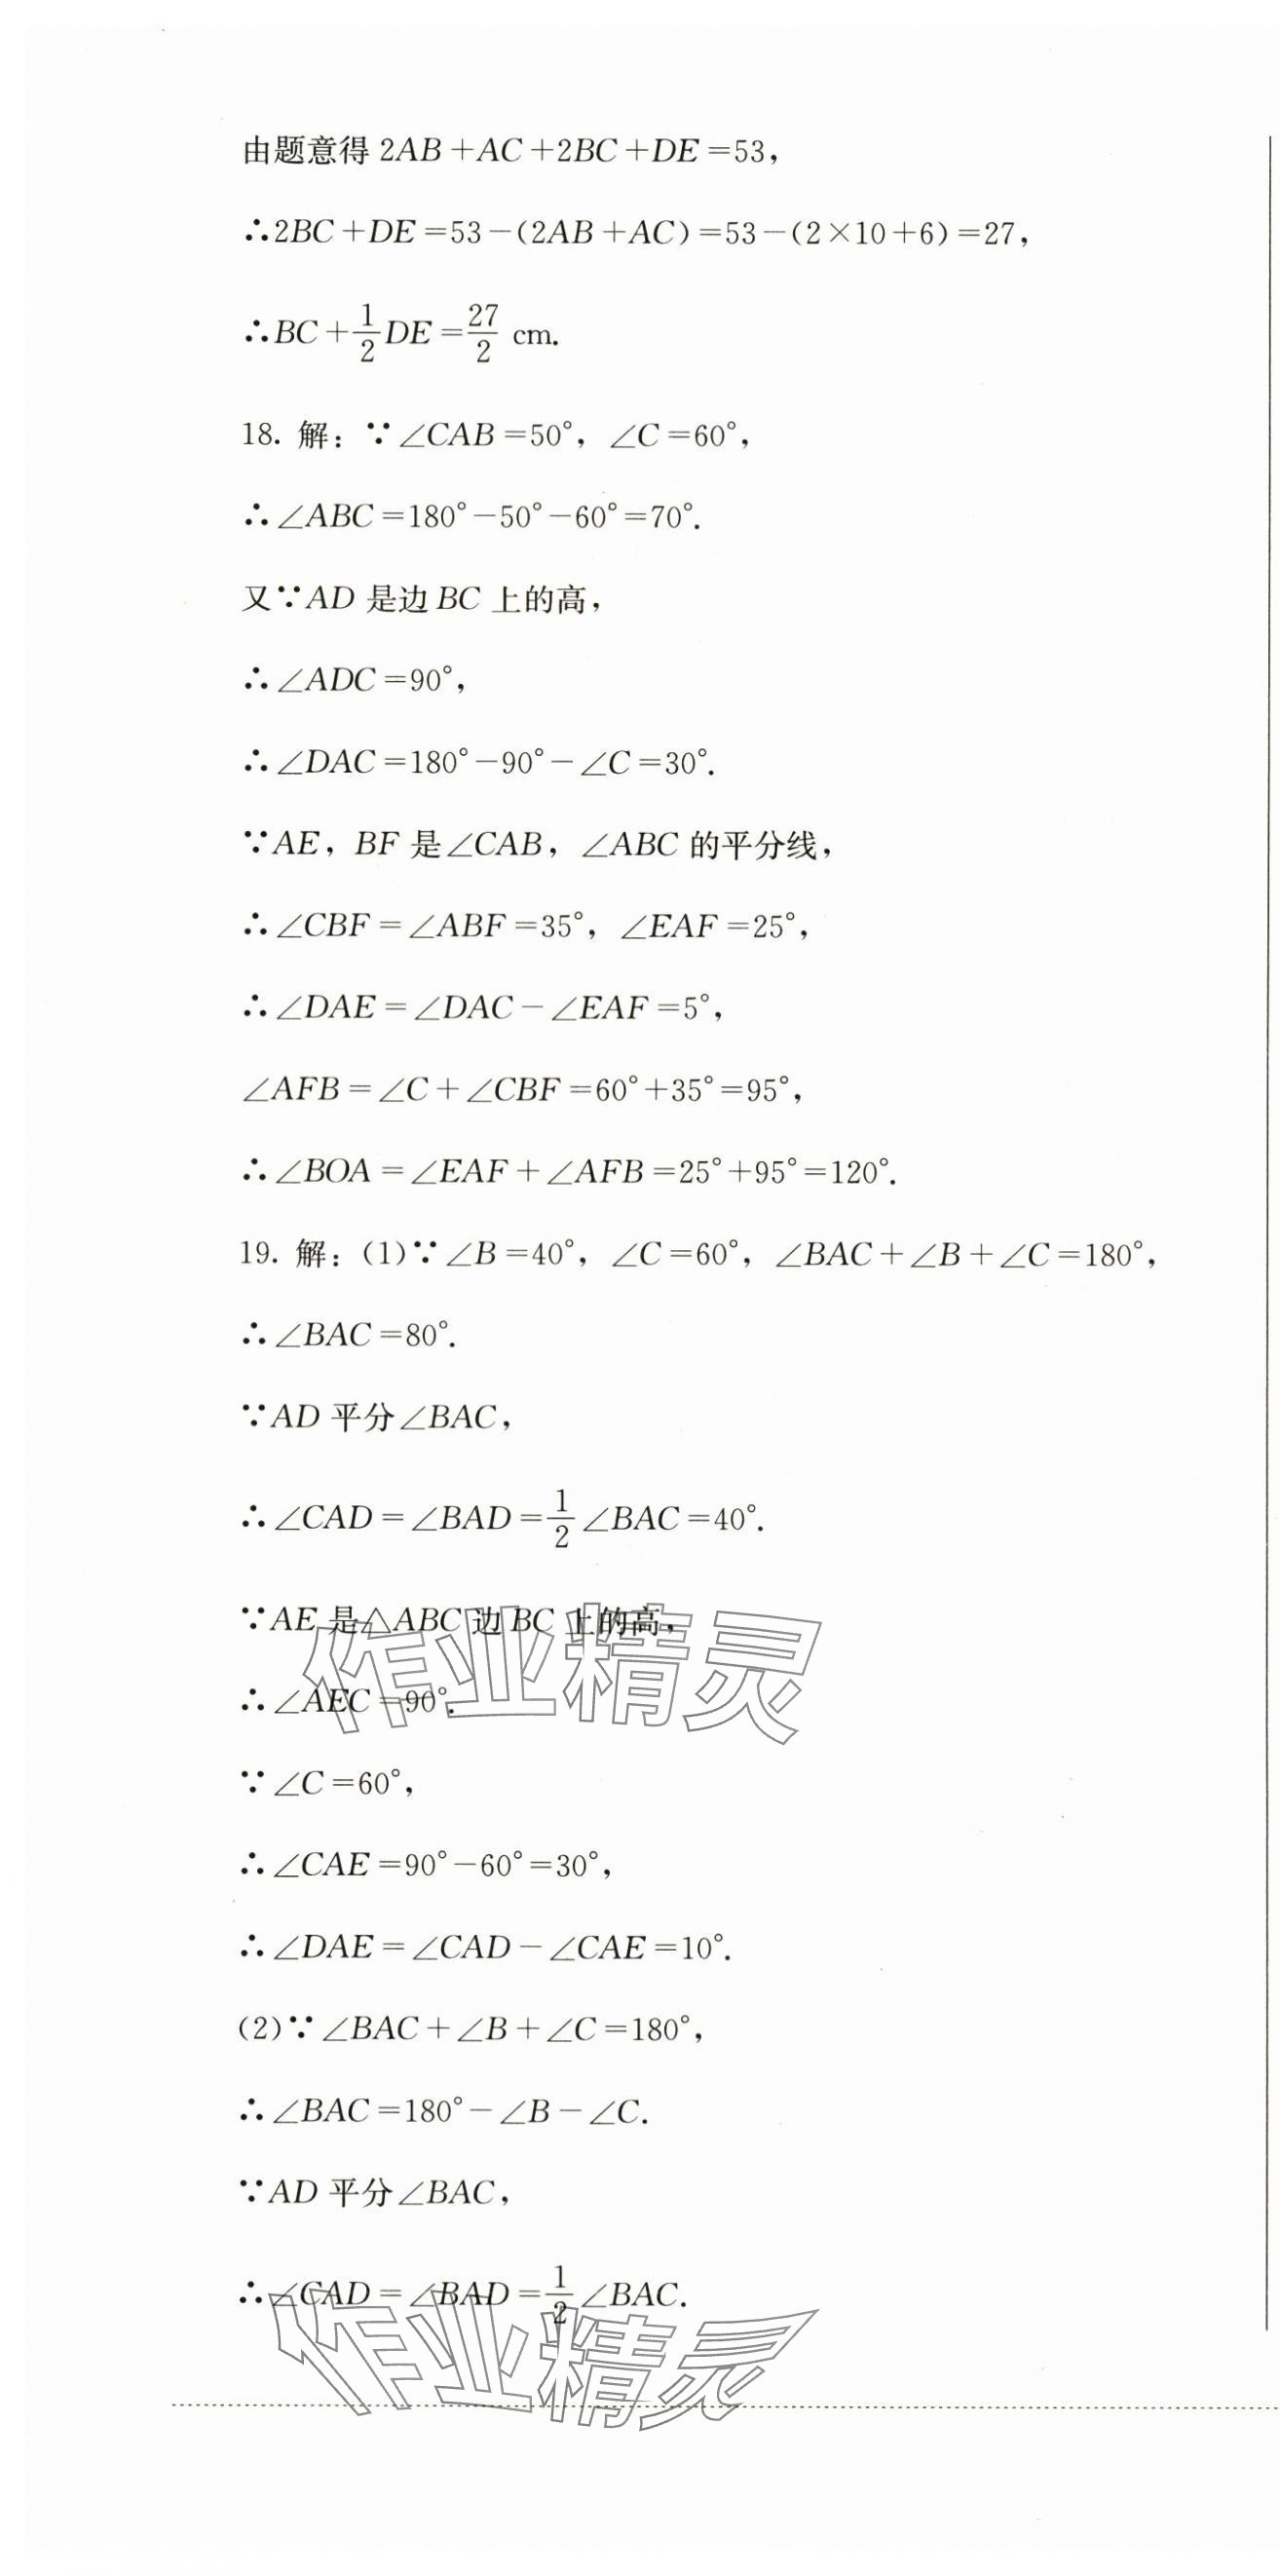 由题意得 2AB+AC+2BC+DE=53，
∴2BC+DE=53-(2AB+AC)=53-(2×10+6)=27，
∴BC+1/2DE=27/2 cm.
18. 解：∵∠CAB=50°，∠C=60°，
∴∠ABC=180°-50°-60°=70°.
又∵AD 是边 BC 上的高，
∴∠ADC=90°，
∴∠DAC=180°-90°-∠C=30°.
∵AE，BF 是∠CAB，∠ABC 的平分线，
∴∠CBF=∠ABF=35°，∠EAF=25°，
∴∠DAE=∠DAC-∠EAF=5°，
∠AFB=∠C+∠CBF=60°+35°=95°，
∴∠BOA=∠EAF+∠AFB=25°+95°=120°.
19. 解：(1)∵∠B=40°，∠C=60°，∠BAC+∠B+∠C=180°，
∴∠BAC=80°.
∵AD 平分∠BAC，
∴∠CAD=∠BAD=1/2∠BAC=40°.
∵AE 是△ABC 边 BC 上的高，
作业精灵
∴∠AEC=90°.
∵∠C=60°，
∴∠CAE=90°-60°=30°，
∴∠DAE=∠CAD-∠CAE=10°.
(2)∵∠BAC+∠B+∠C=180°，
∴∠BAC=180°-∠B-∠C.
∵AD 平分∠BAC，
∴∠CAD=∠BAD=1/2∠BAC.
作业精灵